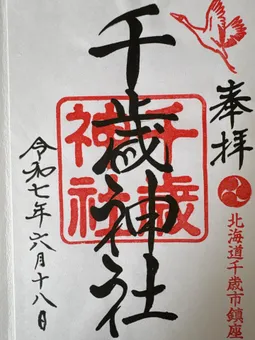 奉拝
北海道千歳市鎮座
千歳神社
千歳
神社
令和七年六月十八日